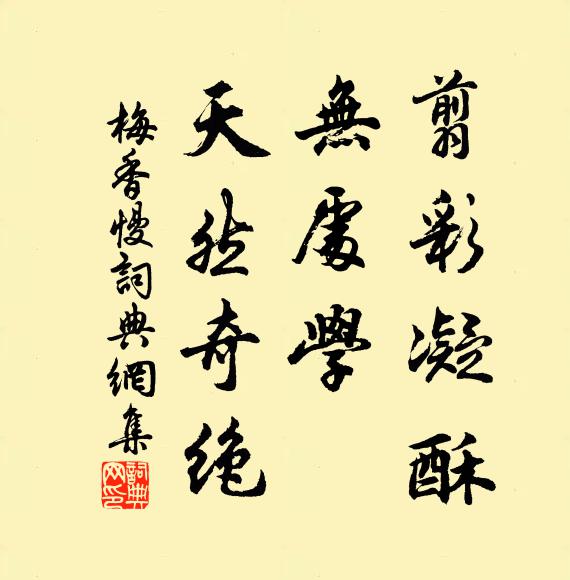 翦彩凝酥
無處學
天然奇絕
梅香慢詞典網集
詞典網印